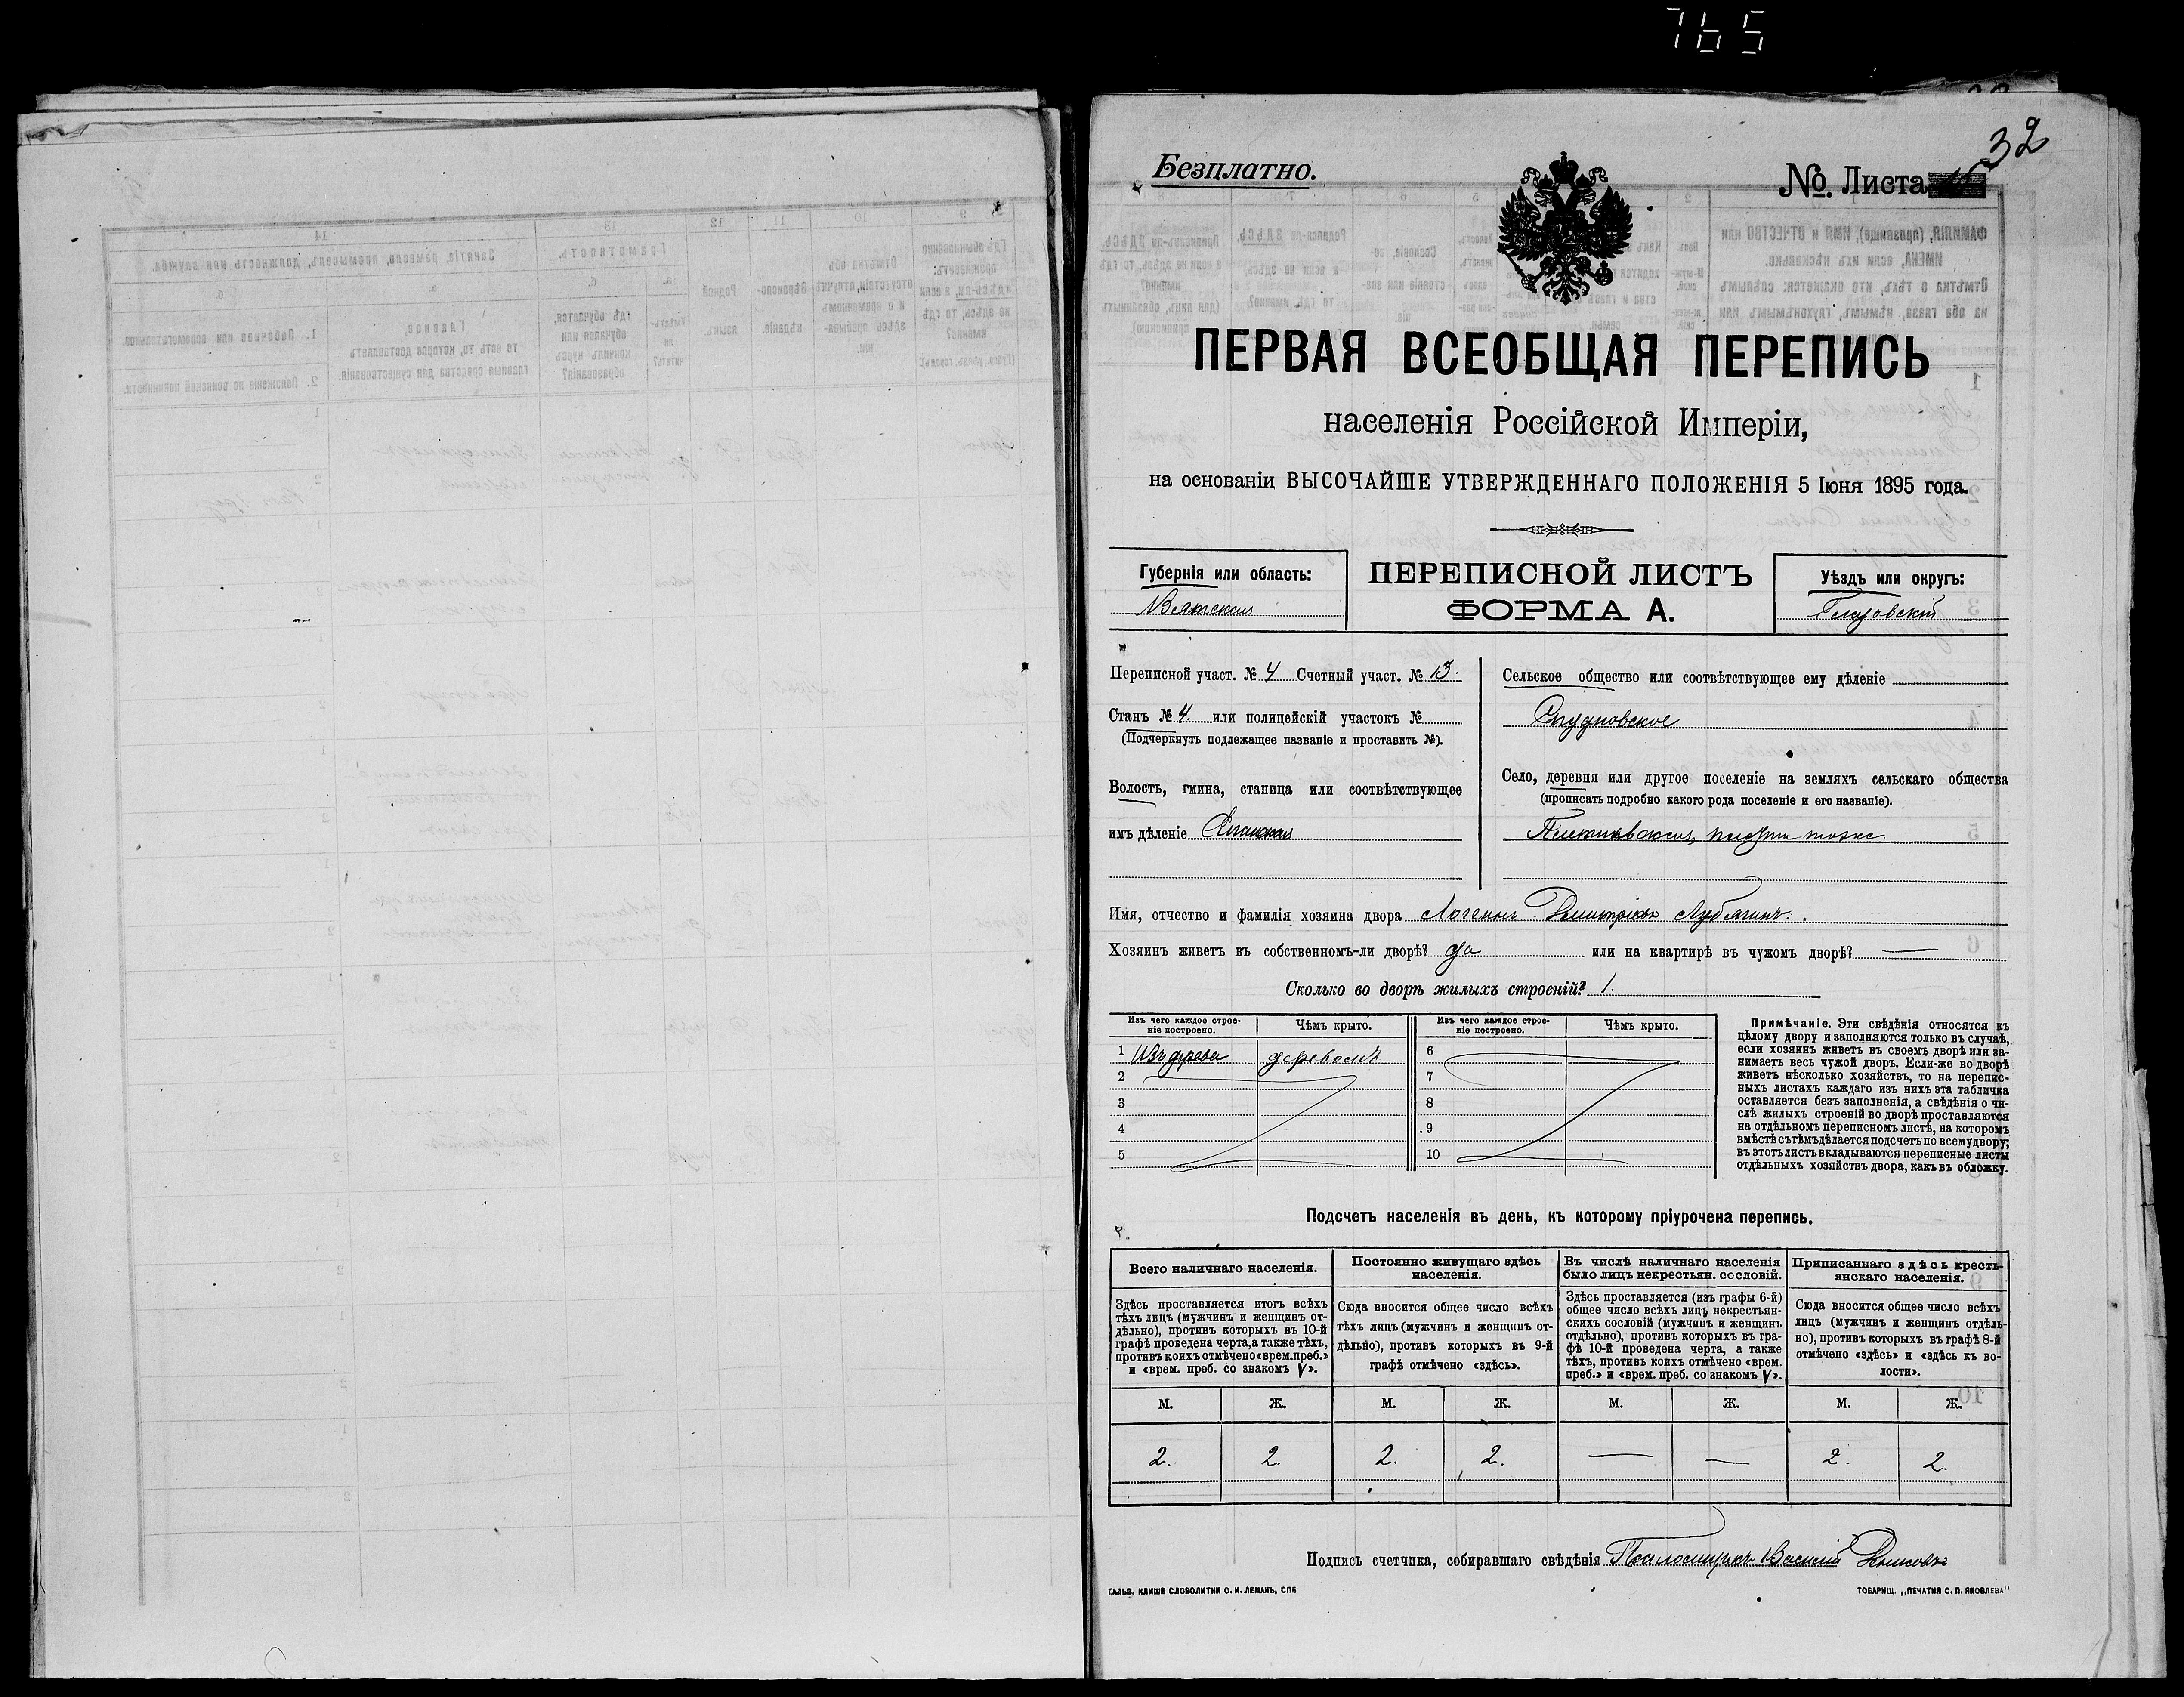 765
32
Безплатно.
№. Листа
ПЕРВАЯ ВСЕОБЩАЯ ПЕРЕПИСЬ
населенія Россійской Имперіи,
на основаніи ВЫСОЧАЙШЕ УТВЕРЖДЕННАГО ПОЛОЖЕНІЯ 5 Іюня 1895 года.
Губернія или область:
Вятская
ПЕРЕПИСНОЙ ЛИСТЪ
ФОРМА А.
Уѣздъ или округъ:
Глазовскій
Переписной участ. № 4 Счетный участ. № 13.
Станъ № 4. или полицейскій участокъ №
(Подчеркнуть подлежащее названіе и проставить №).
Волость, гмина, станица или соотвѣтствующее
имъ дѣленіе
Сельское общество или соотвѣтствующее ему дѣленіе
Село, деревня или другое поселеніе на земляхъ сельскаго общества
(прописать подробно какого рода поселеніе и его названіе).
Имя, отчество и фамилія хозяина двора Логенъ Димитріевъ Лубягинъ.
Хозяинъ живетъ въ собственномъ-ли дворѣ? да или на квартирѣ въ чужомъ дворѣ? —
Сколько во дворѣ жилыхъ строеній? 1.
Изъ чего каждое строе-
ніе построено.
Чѣмъ крыто.
Изъ чего каждое строе-
ніе построено.
Чѣмъ крыто.
1 Изъ дерева деревомъ
2
3
4
5
6
7
8
9
10
Примѣчаніе. Эти свѣдѣнія относятся къ
цѣлому двору и заполняются только въ случаѣ,
если хозяинъ живетъ въ своемъ дворѣ или за-
нимаетъ весь чужой дворъ. Если-же во дворѣ
живетъ нѣсколько хозяйствъ, то на перепис-
ныхъ листахъ каждаго изъ нихъ эта табличка
оставляется безъ заполненія, а свѣдѣнія о чи-
слѣ жилыхъ строеній во дворѣ проставляются
на отдѣльномъ переписномъ листѣ, на которомъ
вмѣстѣ съ тѣмъ дѣлается подсчетъ по всему двору;
въ этотъ листъ вкладываются переписные листы
отдѣльныхъ хозяйствъ двора, какъ въ обложку.
Подсчетъ населенія въ день, къ которому пріурочена перепись.
Всего наличнаго населенія.
Постоянно живущаго здѣсь
населенія.
Въ числѣ наличнаго населенія
было лицъ некрестьян. сословій.
Приписаннаго здѣсь кресть-
янскаго населенія.
Здѣсь проставляется итогъ всѣхъ
тѣхъ лицъ (мужчинъ и женщинъ от-
дѣльно), противъ которыхъ въ 10-й
графѣ проведена черта, а также тѣхъ,
противъ коихъ отмѣчено «врем. преб.»
и «врем. преб. со знакомъ V».
Сюда вносится общее число всѣхъ
тѣхъ лицъ (мужчинъ и женщинъ от-
дѣльно), противъ которыхъ въ 9-й
графѣ отмѣчено «здѣсь».
Здѣсь проставляется (изъ графы 6-й)
общее число всѣхъ лицъ некрестьян-
скихъ сословій (мужчинъ и женщинъ
отдѣльно), противъ которыхъ въ гра-
фѣ 10-й проведена черта, а также
тѣхъ, противъ коихъ отмѣчено «врем.
преб.» и «врем. преб. со знакомъ V».
Сюда вносится общее число всѣхъ
лицъ (мужчинъ и женщинъ отдѣль-
но), противъ которыхъ въ графѣ 8-й
отмѣчено «здѣсь» и «здѣсь къ во-
лости».
М. Ж. М. Ж. М. Ж. М. Ж.
2. 2 2. 2. — — 2. 2.
Подпись счетчика, собиравшаго свѣдѣнія Псаломщикъ Василій
ГАЛЬВ. КЛИШЕ СЛОВОЛИТНИ О. И. ЛЕМАНЪ, СПБ
ТОВАРИЩ. „ПЕЧАТНЯ С. П. ЯКОВЛЕВА“